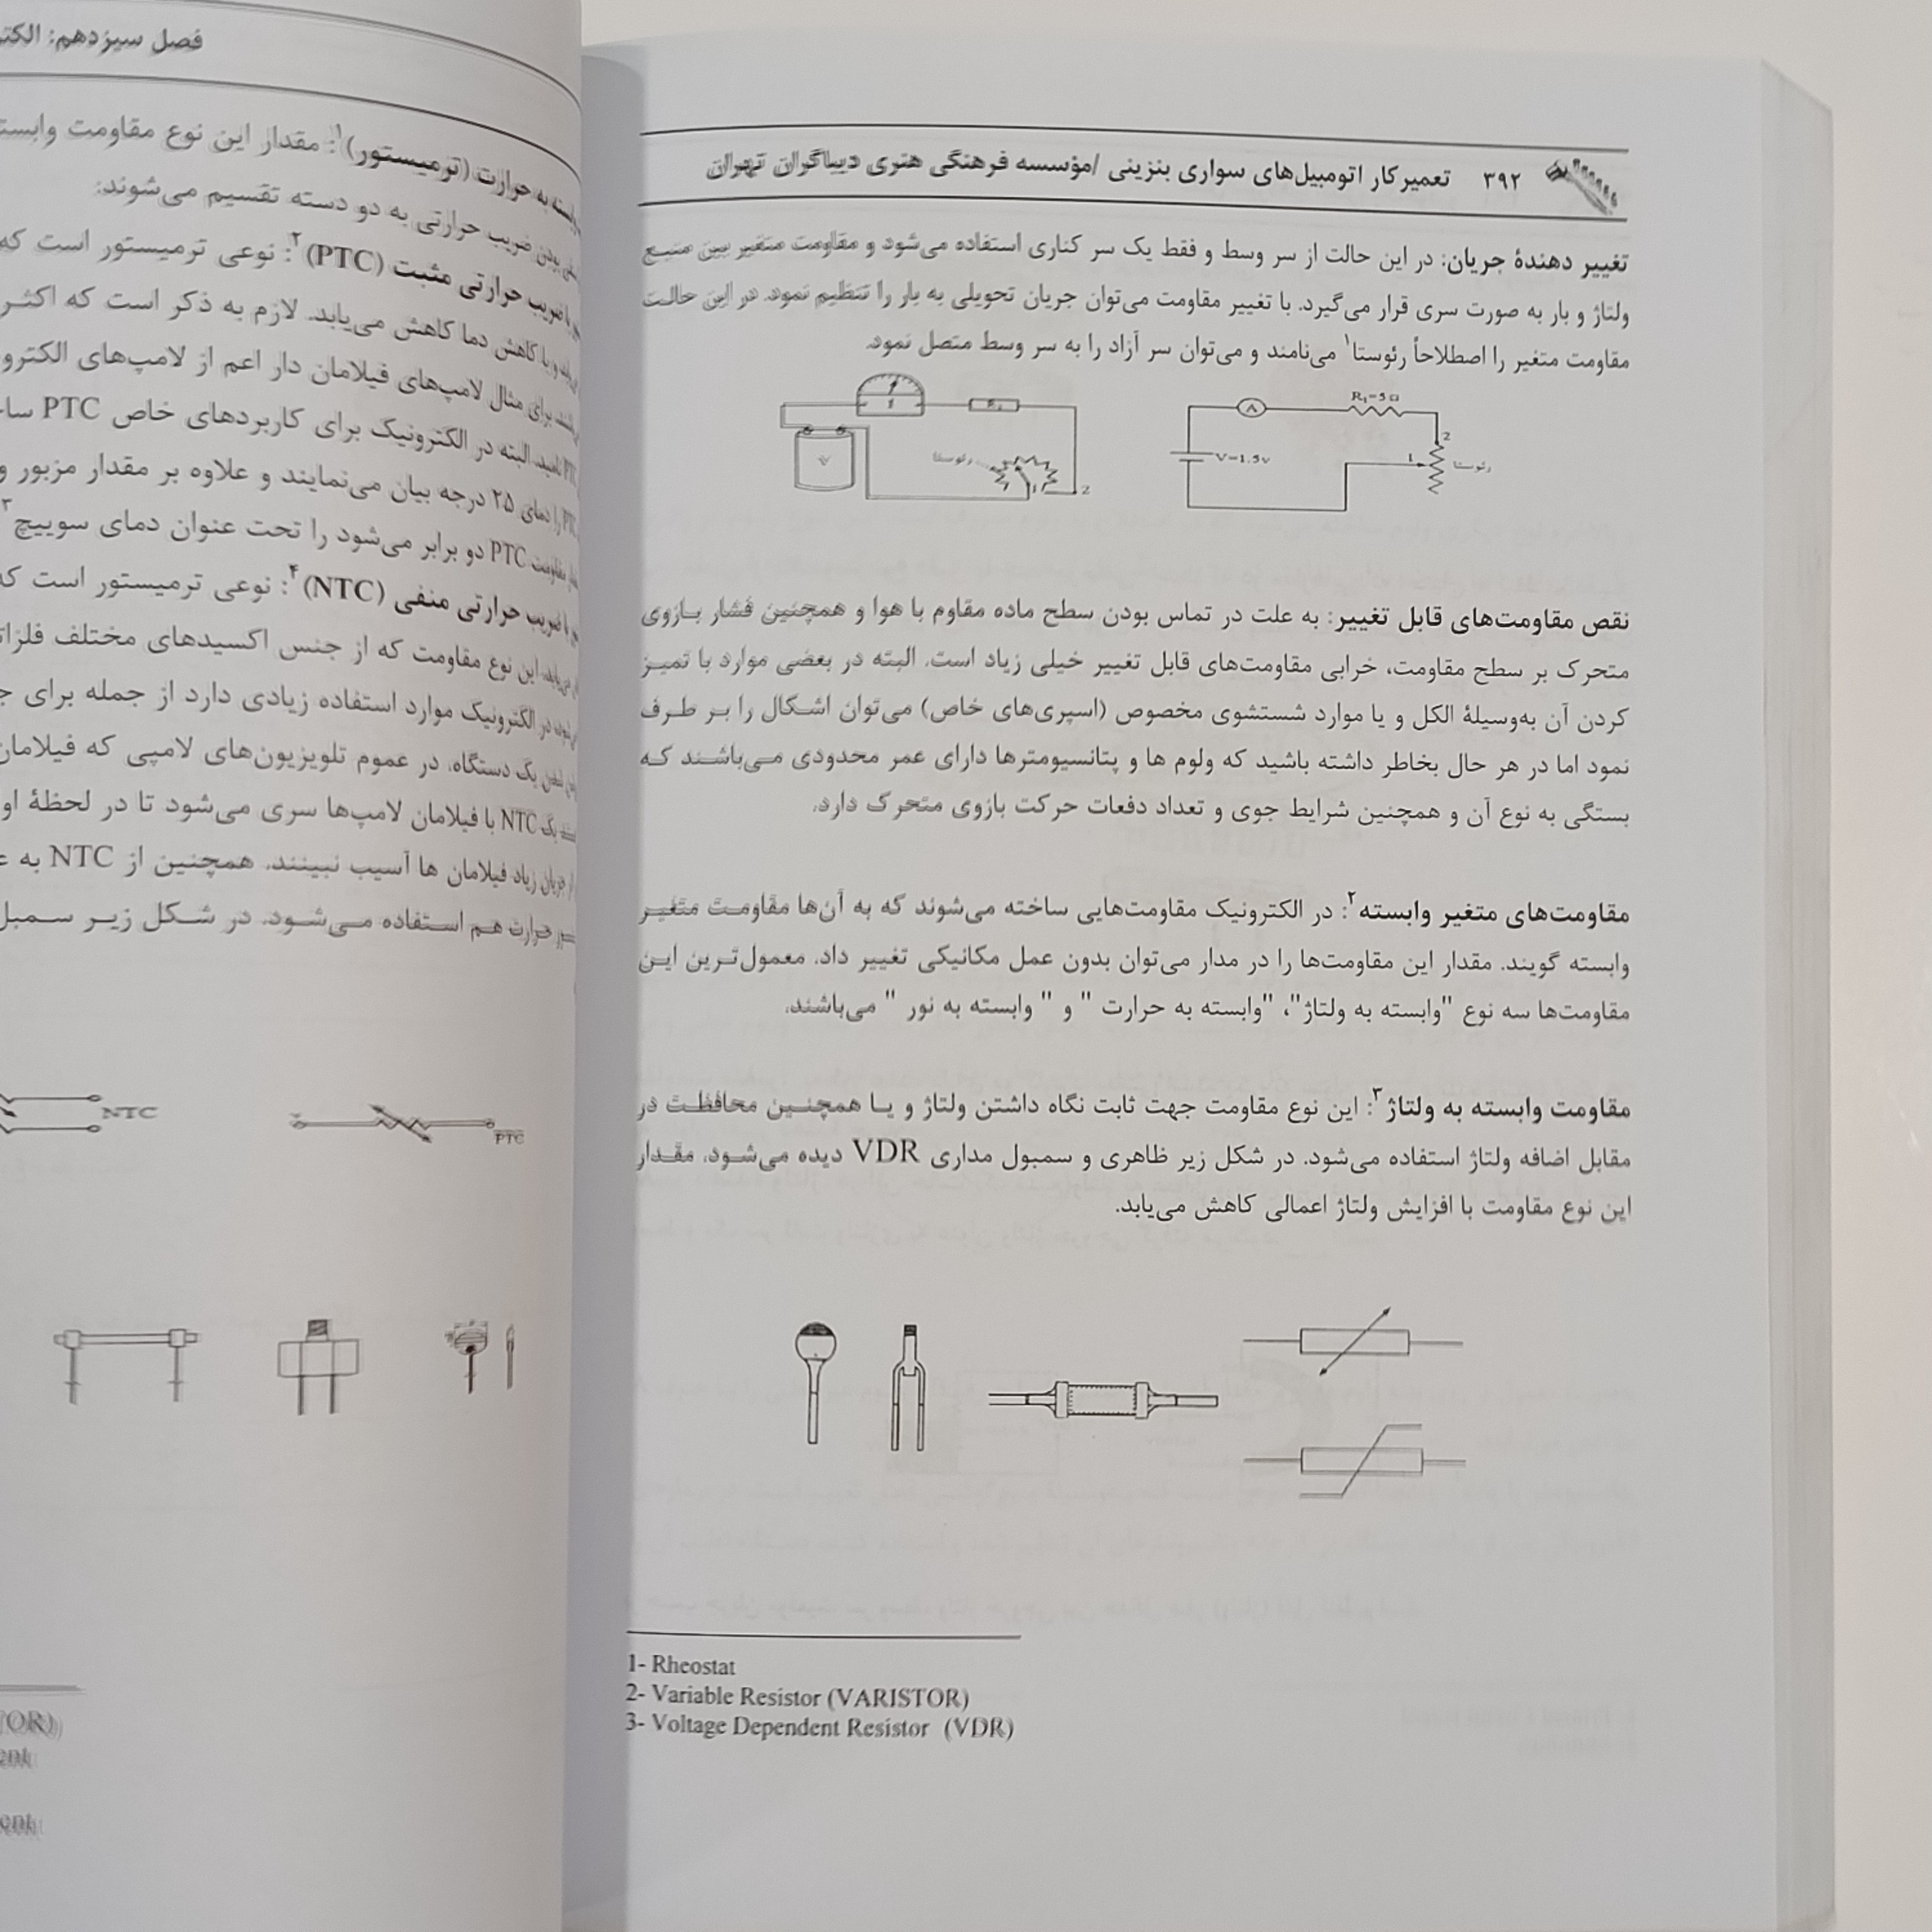 ۳۹۲ تعمیرکار اتومبیل‌های سواری بنزینی /مؤسسه فرهنگی هنری دیباگران تهران
تغییر دهندهٔ جریان: در این حالت از سر وسط و فقط یک سر کناری استفاده می‌شود و مقاومت متغیر بین منبع
ولتاژ و بار به صورت سری قرار می‌گیرد. با تغییر مقاومت می‌توان جریان تحویلی به بار را تنظیم نمود. در این حالت
مقاومت متغیر را اصطلاحاً رئوستا۱ می‌نامند و می‌توان سر آزاد را به سر وسط متصل نمود.
R1=5Ω
A
2
V=1.5v
1
رئوستا
رئوستا
1
2
نقص مقاومت‌های قابل تغییر: به علت در تماس بودن سطح ماده مقاوم با هوا و همچنین فشار بازوی
متحرک بر سطح مقاومت، خرابی مقاومت‌های قابل تغییر خیلی زیاد است. البته در بعضی موارد با تمیز
کردن آن به‌وسیلهٔ الکل و یا موارد شستشوی مخصوص (اسپری‌های خاص) می‌توان اشگال را بر طرف
نمود اما در هر حال بخاطر داشته باشید که ولوم ها و پتانسیومترها دارای عمر محدودی می‌باشند که
بستگی به نوع آن و همچنین شرایط جوی و تعداد دفعات حرکت بازوی متحرک دارد.
مقاومت‌های متغیر وابسته۲: در الکترونیک مقاومت‌هایی ساخته می‌شوند که به آن‌ها مقاومت متغیر
وابسته گویند. مقدار این مقاومت‌ها را در مدار می‌توان بدون عمل مکانیکی تغییر داد. معمول‌ترین این
مقاومت‌ها سه نوع "وابسته به ولتاژ"، "وابسته به حرارت " و " وابسته به نور " می‌باشند.
مقاومت وابسته به ولتاژ۳: این نوع مقاومت جهت ثابت نگاه داشتن ولتاژ و یا همچنین محافظت در
مقابل اضافه ولتاژ استفاده می‌شود. در شکل زیر ظاهری و سمبول مداری VDR دیده می‌شود. مقدار
این نوع مقاومت با افزایش ولتاژ اعمالی کاهش می‌یابد.
1- Rheostat
2- Variable Resistor (VARISTOR)
3- Voltage Dependent Resistor (VDR)
فصل سیزدهم:
به حرارت (ترمیستور)۱: مقدار این نوع مقاومت
بودن ضریب حرارتی به دو دسته تقسیم می‌شوند:
با ضریب حرارتی مثبت (PTC)۲: نوعی ترمیستور است که
و با کاهش دما کاهش می‌یابد. لازم به ذکر است که اکثر
برای مثال لامپ‌های فیلامان دار اعم از لامپ‌های
PTC نامید. البته در الکترونیک برای کاربردهای خاص PTC
PTC را دمای ۲۵ درجه بیان می‌نمایند و علاوه بر مقدار مزبور و
مقاومت PTC دو برابر می‌شود را تحت عنوان دمای سوییچ۳
با ضریب حرارتی منفی (NTC)۴: نوعی ترمیستور است که
می‌یابد. این نوع مقاومت که از جنس اکسیدهای مختلف
در الکترونیک موارد استفاده زیادی دارد از جمله برای
یک دستگاه. در عموم تلویزیون‌های لامپی که فیلامان
یک NTC با فیلامان لامپ‌ها سری می‌شود تا در لحظهٔ
جریان زیاد فیلامان ها آسیب نبینند. همچنین از NTC به
حرارت هم استفاده می‌شود. در شکل زیر سمبل
NTC
PTC